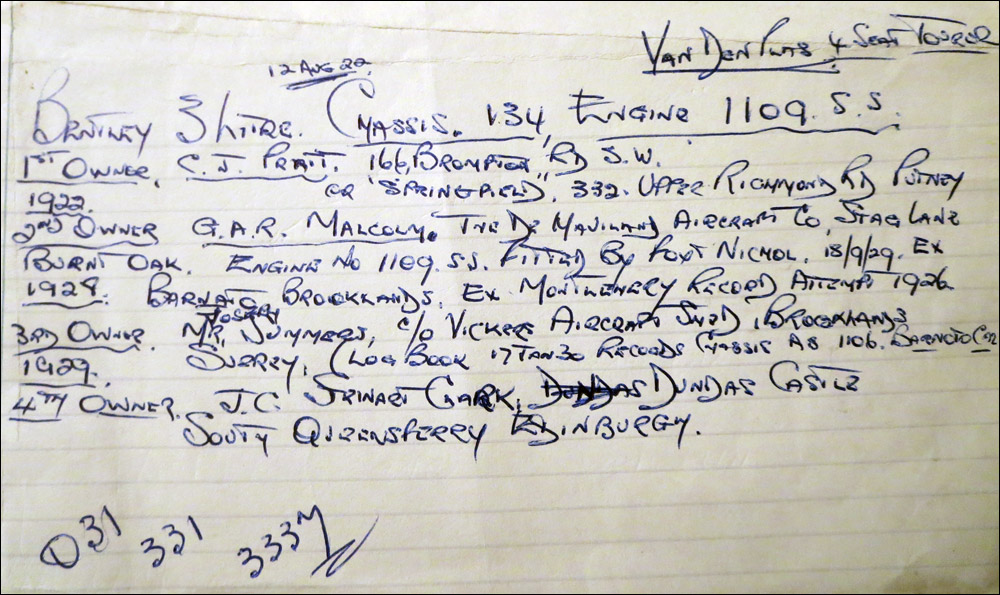 VAN DEN PLAS 4 SEAT TOURER
12 AUG 22.
BENTLEY 3 LITRE. CHASSIS. 134, ENGINE 1109. S.S.
1ST OWNER, C. J. PRATT. 166, BROMPTON RD S.W.
1922. OR "SPRINGFIELD, 332. UPPER RICHMOND RD PUTNEY
2ND OWNER G.A.R. MALCOLM. THE DE HAVILAND AIRCRAFT CO, STAG LANE
BURNT OAK. ENGINE NO 1109. S.S. FITTED BY FOX & NICHOL. 18/9/29. EX
1928. BARNATO BROOKLANDS, EX MONTLHERY RECORD ATTEMPT 1926
JOSEPH
3RD OWNER. MR, SUMMERS, C/O VICKERS AIRCRAFT SHED, BROOKLANDS
1929. SURREY, (LOG BOOK 17 JAN 30 RECORDS CHASSIS AS 1106. BARNATO CAR
4TH OWNER, J.C. STEWART CLARK, DUNDAS CASTLE
SOUTH QUEENSFERRY EDINBURGH.
331 333